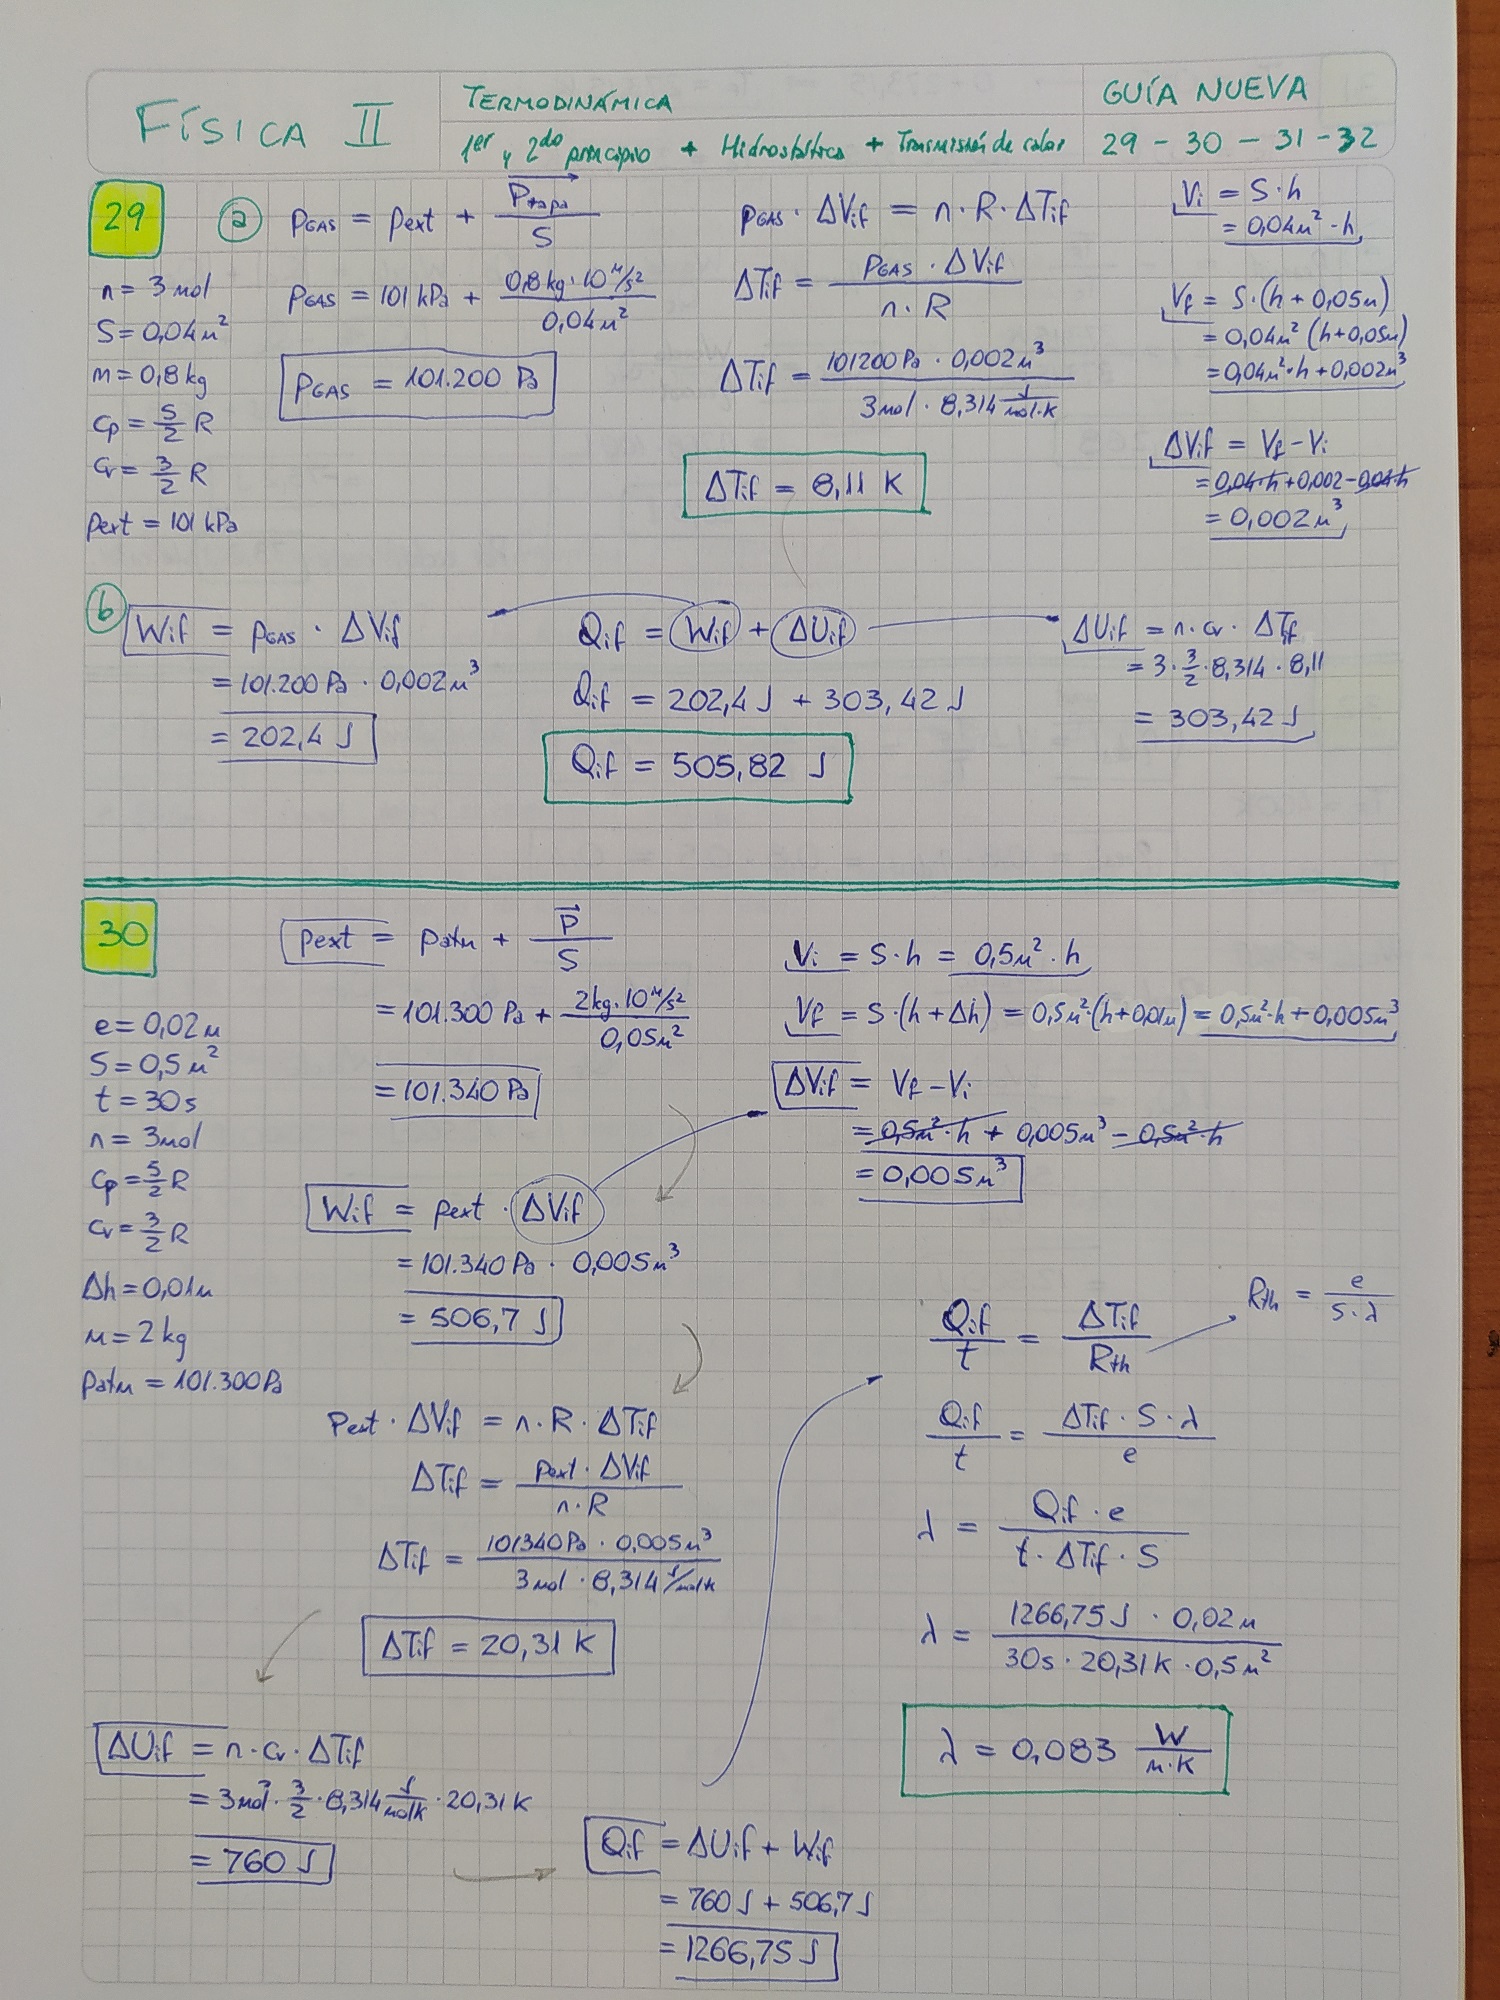 FÍSICA II
TERMODINÁMICA
1er y 2do principio + Hidrostática + Transmisión de calor
GUÍA NUEVA
29 - 30 - 31 - 32
29
n = 3 mol
S = 0,04 m²
m = 0,8 kg
Cp = 5/2 R
Cv = 3/2 R
Pext = 101 kPa
a
PGAS = Pext + Ptapa/S
PGAS = 101 kPa + 0,8 kg · 10 m/s² / 0,04 m²
PGAS = 101.200 Pa
PGAS · ΔVif = n · R · ΔTif
ΔTif = PGAS · ΔVif / n · R
ΔTif = 101200 Pa · 0,002 m³ / 3 mol · 8,314 J/mol·K
ΔTif = 8,11 K
Vi = S · h
= 0,04 m² · h
Vf = S · (h + 0,05m)
= 0,04 m² (h + 0,05m)
= 0,04 m² · h + 0,002 m³
ΔVif = Vf - Vi
= 0,04·h + 0,002 - 0,04·h
= 0,002 m³
b
Wif = PGAS · ΔVif
= 101.200 Pa · 0,002 m³
= 202,4 J
Qif = Wif + ΔUif
Qif = 202,4 J + 303,42 J
Qif = 505,82 J
ΔUif = n · Cv · ΔTif
= 3 · 3/2 · 8,314 · 8,11
= 303,42 J
30
e = 0,02 m
S = 0,5 m²
t = 30 s
n = 3 mol
Cp = 5/2 R
Cv = 3/2 R
Δh = 0,01 m
m = 2 kg
Patm = 101.300 Pa
Pext = Patm + P/S
= 101.300 Pa + 2 kg · 10 m/s² / 0,05 m²
= 101.340 Pa
Vi = S · h = 0,5 m² · h
Vf = S · (h + Δh) = 0,5 m² · (h + 0,01m) = 0,5 m² · h + 0,005 m³
ΔVif = Vf - Vi
= 0,5 m² · h + 0,005 m³ - 0,5 m² · h
= 0,005 m³
Wif = Pext · ΔVif
= 101.340 Pa · 0,005 m³
= 506,7 J
Pext · ΔVif = n · R · ΔTif
ΔTif = Pext · ΔVif / n · R
ΔTif = 101340 Pa · 0,005 m³ / 3 mol · 8,314 J/mol K
ΔTif = 20,31 K
ΔUif = n · Cv · ΔTif
= 3 mol · 3/2 · 8,314 J/mol K · 20,31 K
= 760 J
Qif = ΔUif + Wif
= 760 J + 506,7 J
= 1266,75 J
Qif/t = ΔTif/Rth
Rth = e / S · λ
Qif/t = ΔTif · S · λ / e
λ = Qif · e / t · ΔTif · S
λ = 1266,75 J · 0,02 m / 30 s · 20,31 K · 0,5 m²
λ = 0,083 W/m·K